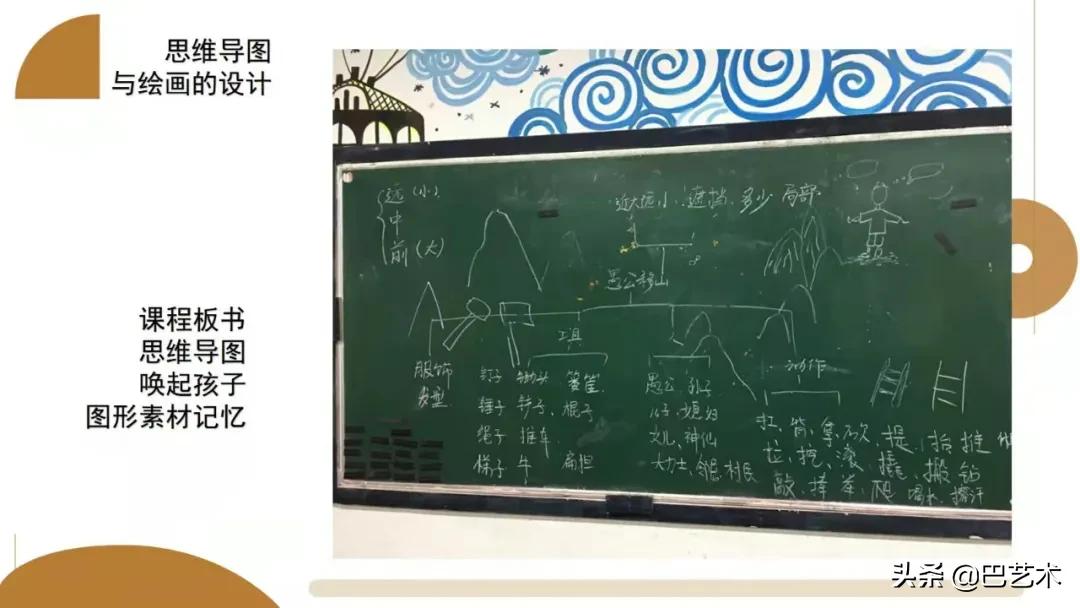 思维导图
与绘画的设计
课程板书
思维导图
唤起孩子
图形素材记忆
远（小）
中
前（大）
近大远小、遮挡、多少 局部
愚公移山
工具
动作
服饰
发型
钉子 锄头 箩筐
锤子 铲子、棍子
绳子 推车
梯子 牛 扁担
愚公 孙子
儿子、媳妇
女儿、神仙
大力士、邻居、村民
扛、背、拿、砍、提、抬 推
拉、挖、滚、撬、搬 钻
敲、择 举、爬 喝水、擦汗
头条 @巴艺术